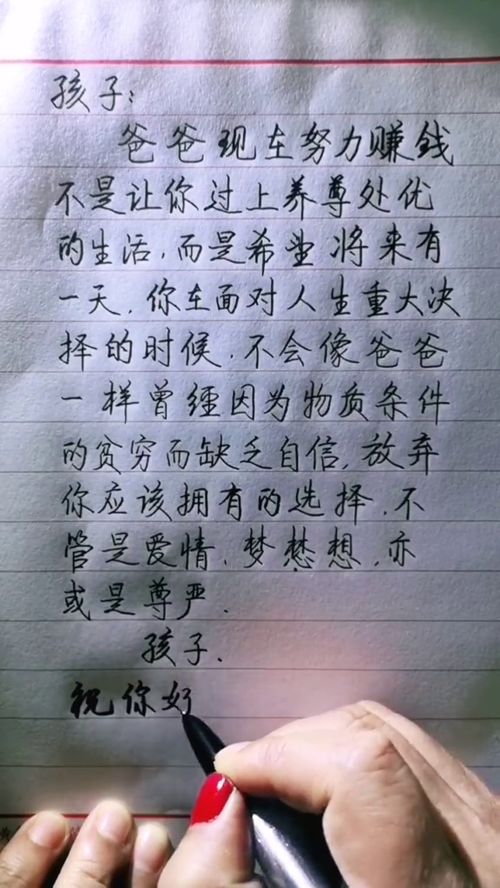 孩子:
爸爸现在努力赚钱
不是让你过上养尊处优
的生活,而是希望将来有
一天,你在面对人生重大决
择的时候,不会像爸爸
一样曾经因为物质条件
的贫穷而缺乏自信,放弃
你应该拥有的选择,不
管是爱情,梦想,亦
或是尊严.
孩子,
祝你好